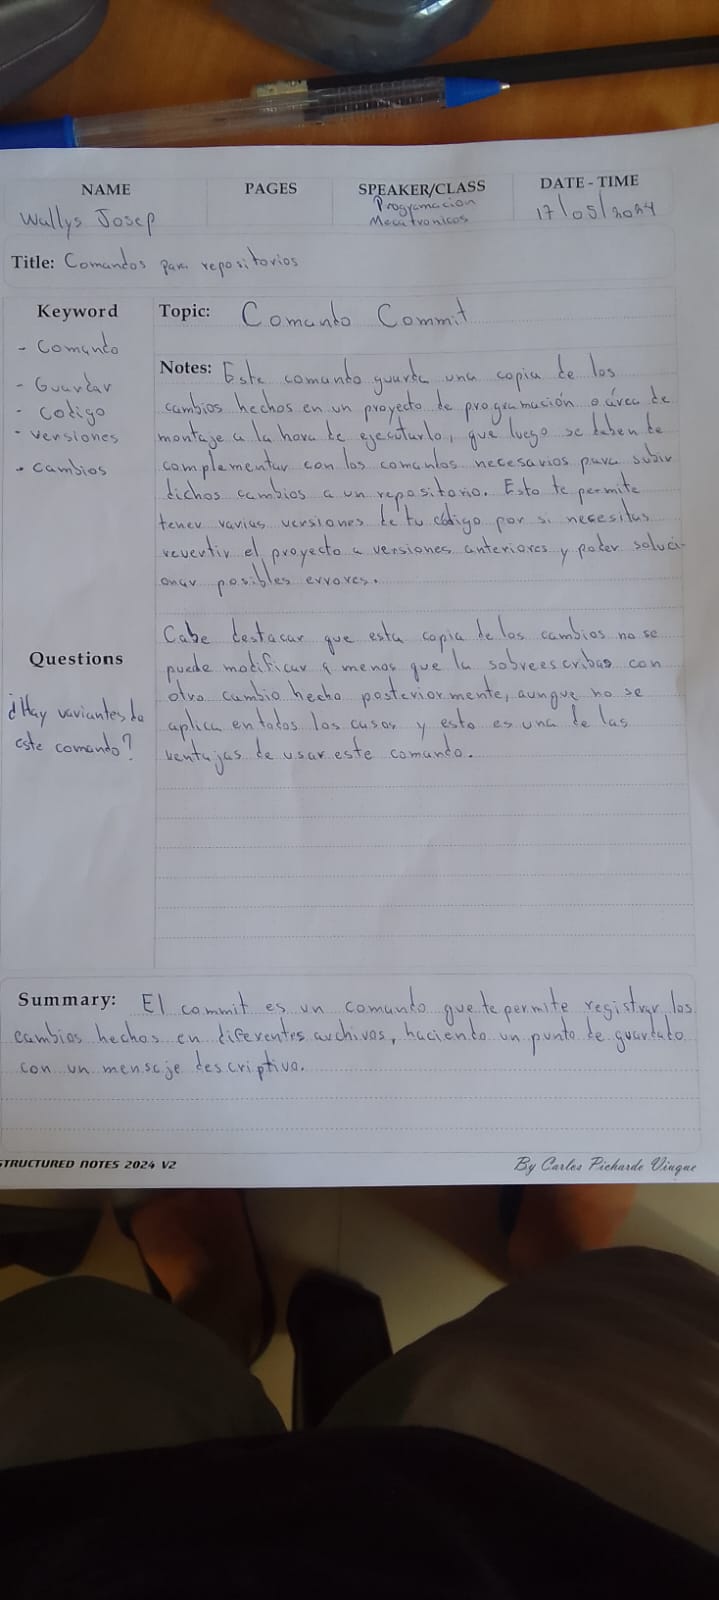 NAME PAGES SPEAKER/CLASS DATE - TIME
Wallys Josep Programacion Mecatronicos 17/05/2024
Title: Comandos para repositorios
Keyword
- Comando
- Guardar
- Codigo
- versiones
- cambios
Topic: Comando Commit
Notes: Este comando guarda una copia de los
cambios hechos en un proyecto de programación o área de
montaje a la hora de ejecutarlo, que luego se deben de
complementar con los comandos necesarios para subir
dichos cambios a un repositorio. Esto te permite
tener varias versiones de tu código por si necesitas
revertir el proyecto a versiones anteriores y poder soluci-
onar posibles errores.
Cabe destacar que esta copia de los cambios no se
puede modificar a menos que la sobreescribas con
otro cambio hecho posteriormente, aunque no se
aplica en todos los casos y esto es una de las
ventajas de usar este comando.
Questions
¿Hay variantes de
este comando?
Summary: El commit es un comando que te permite registrar los
cambios hechos en diferentes archivos, haciendo un punto de guardado
con un mensaje descriptivo.
STRUCTURED NOTES 2024 V2
By Carlos Pichardo Vinque